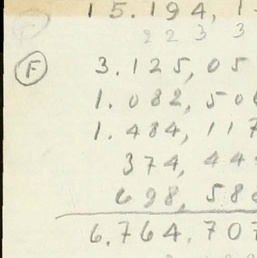 15.194, 1
2 2 3 3
F 3.125,05
1.082,50
1.484,117
374,44
698,58
6.764.707